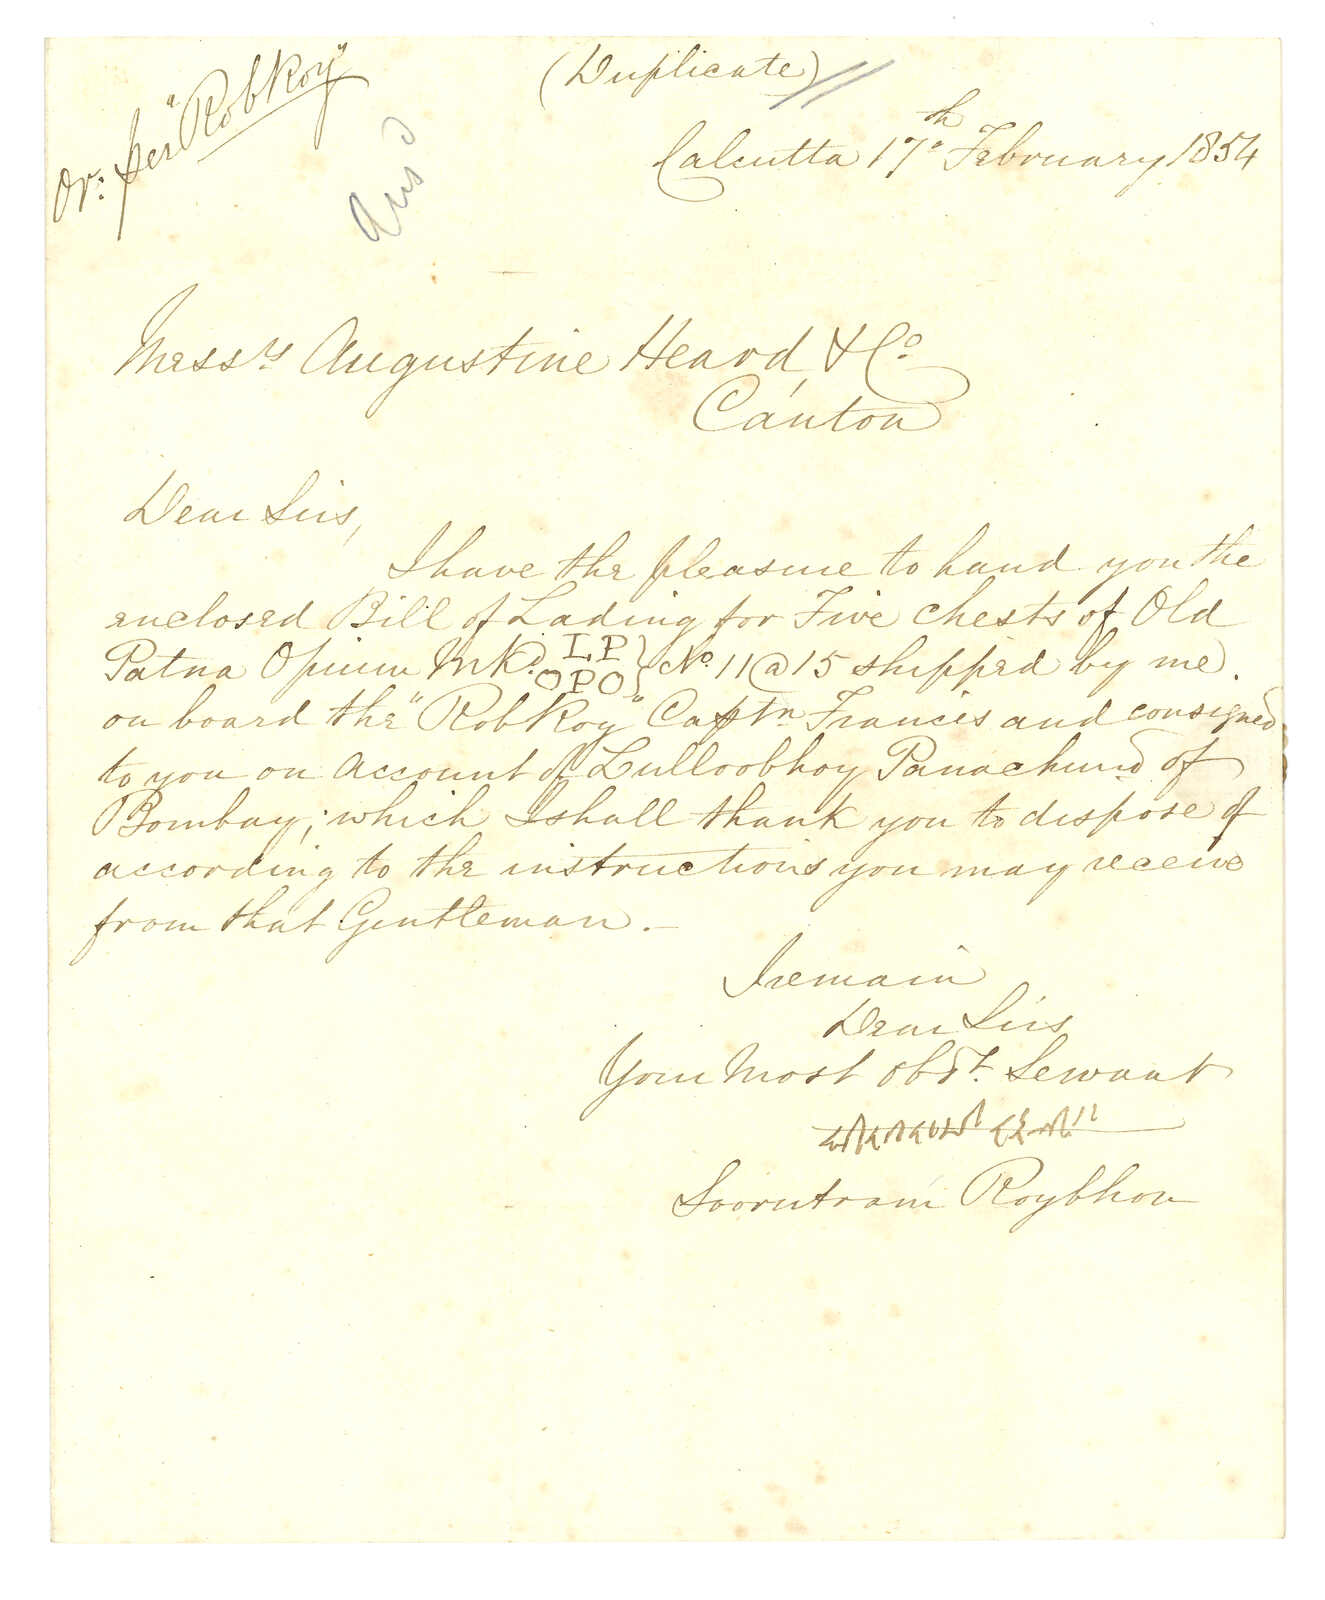 (Duplicate)
Or: per "RobRoy"
Ans^d
Calcutta 17th February 1854
Mess^rs Augustine Heard & Co
Canton
Dear Sirs,
I have the pleasure to hand you the
enclosed Bill of Lading for Five chests of Old
Patna Opium Mkd. LP OPO } No. 11 @ 15 shipped by me
on board the "RobRoy" Captn Francis and consigned
to you on account of Lulloobhoy Panachund of
Bombay; which I shall thank you to dispose of
according to the instructions you may receive
from that Gentleman. –
I remain
Dear Sirs
Your Most Obdt. Servant
Soorutram Roybhou